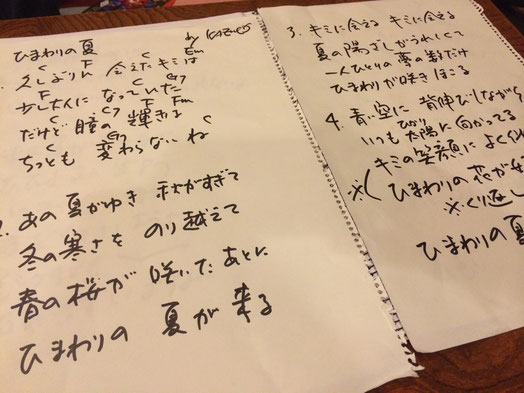 ひまわりの夏
by KAZUKO
C F C Em
久しぶりに 会えたキミは
F C G7
少し大人に なっていた
C C7 F Fm
だけど 瞳の 輝きは
C G7 C
ちっとも 変わらないね
2. あの夏がゆき 秋がすぎて
冬の寒さを のり越えて
春の桜が 咲いたあとに
ひまわりの 夏が来る
3. キミに会える キミに会える
夏の陽ざしがうれしくて
一人ひとりの 夢の数だけ
ひまわりが 咲きほこる
4. 青い空に 背伸びしながら
いつも 太陽に 向かってる
ひかり
※( キミの笑顔に よく似
ひまわりの花が
※くり返し
ひまわりの夏